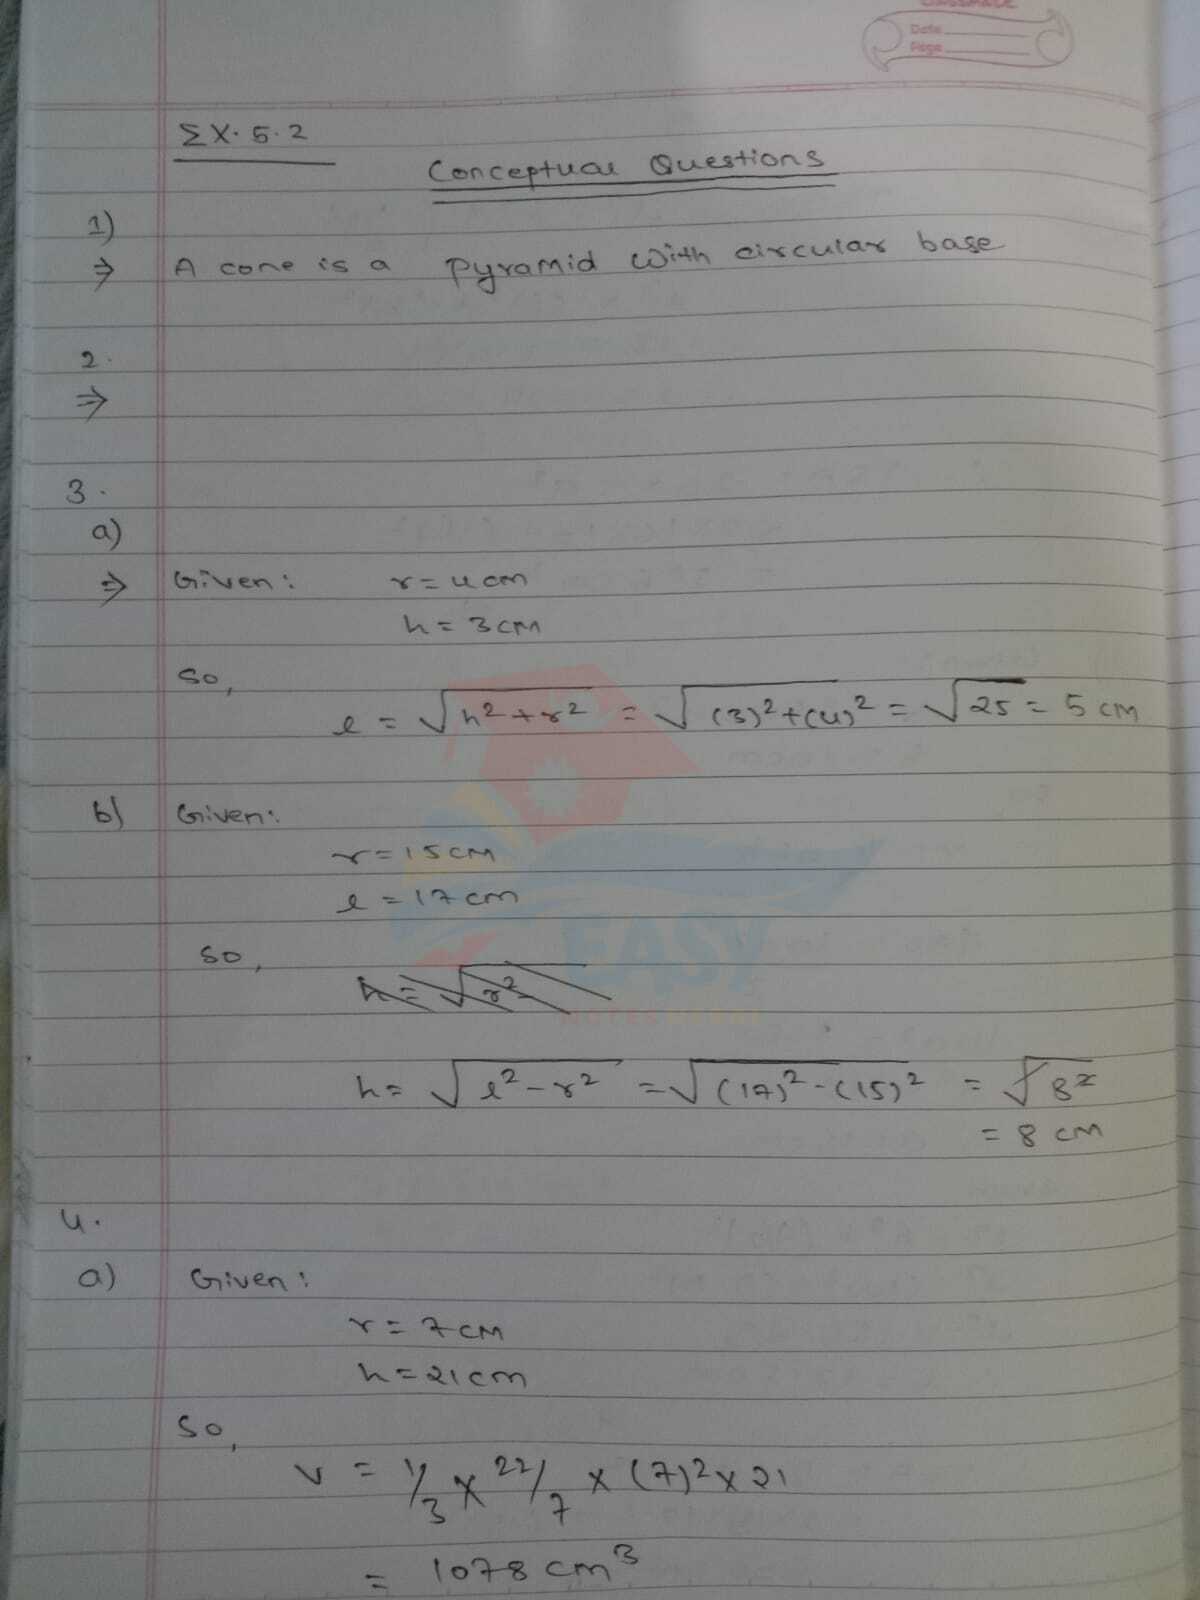 CLASSMATE
Date
Page
EX. 5.2
Conceptual Questions
1)
⇒ A cone is a pyramid with circular base
2.
⇒
3.
a)
⇒ Given: r = 4 cm
h = 3 cm
So,
l = √h² + r² = √(3)² + (4)² = √25 = 5 cm
b) Given:
r = 15 cm
l = 17 cm
So,
h = √r²
h = √l² - r² = √(17)² - (15)² = √8²
= 8 cm
4.
a) Given:
r = 7 cm
h = 21 cm
So,
V = 1/3 × 22/7 × (7)² × 21
= 1078 cm³
EASY